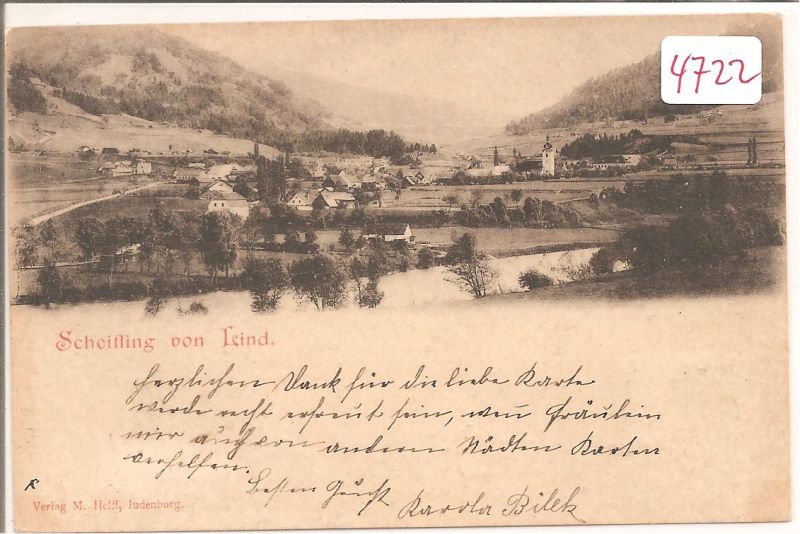 4722
Scheifling von Lind.
Herzlichen Dank für die liebe Karte
werde recht erfreut sein, wen Fräulein
mir auch von andern Städten Karten
verhelfen.
Besten Gruß
Karola Bilek
Verlag M. Helff, Judenburg.